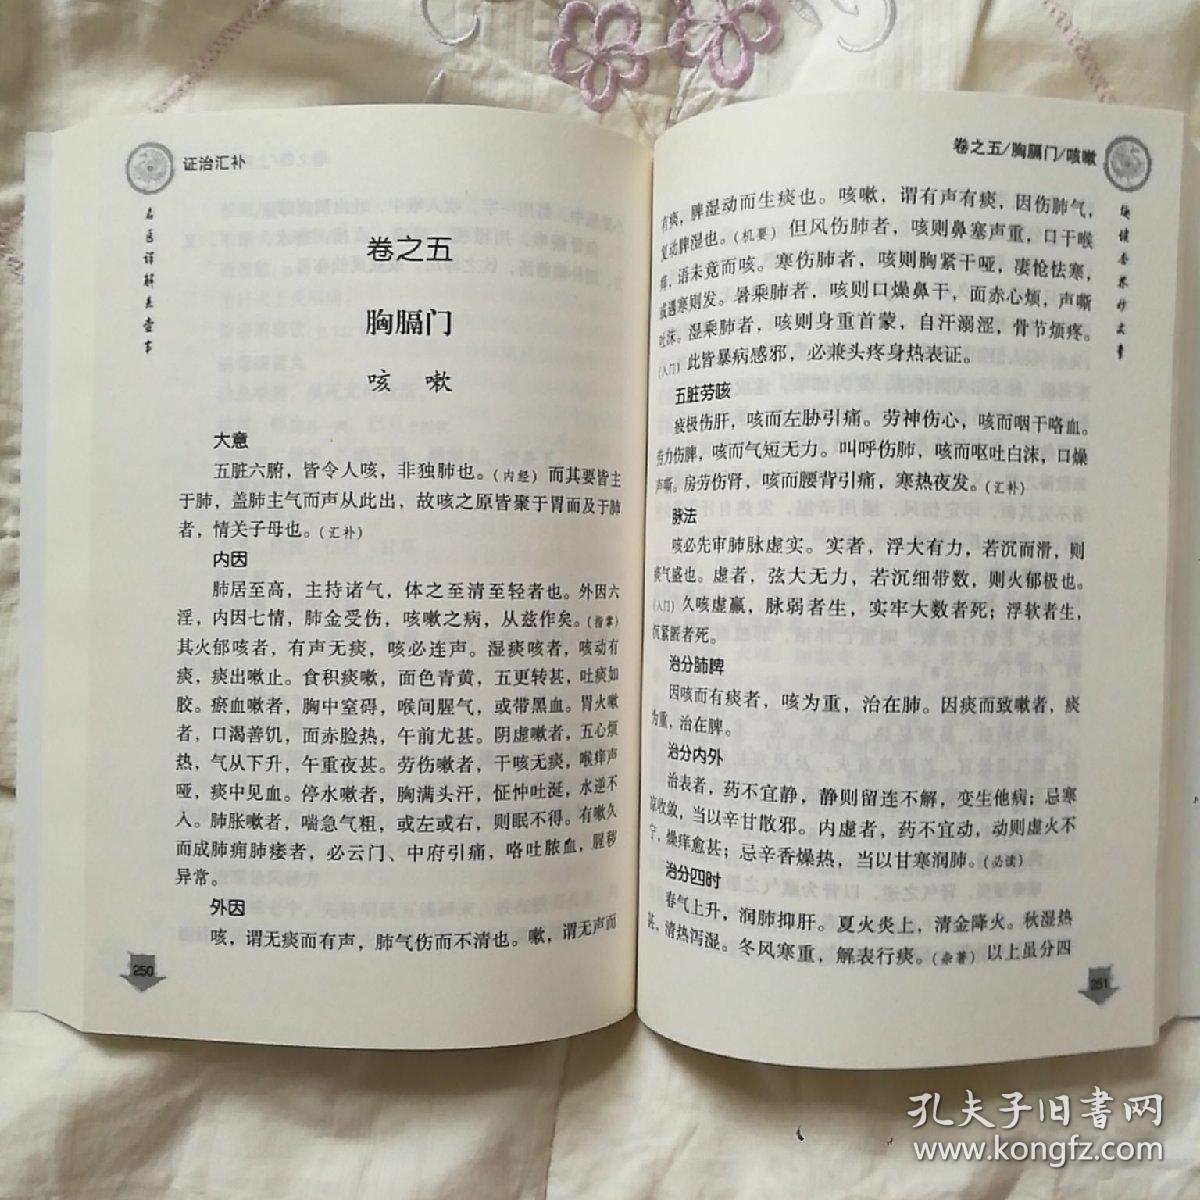 证治汇补
名医详解岐壶事
卷之五
胸膈门
咳 嗽
大意
五脏六腑，皆令人咳，非独肺也。（内经）而其要皆主
于肺，盖肺主气而声从此出，故咳之原皆聚于胃而及于肺
者，情关子母也。（汇补）
内因
肺居至高，主持诸气，体之至清至轻者也。外因六
淫，内因七情，肺金受伤，咳嗽之病，从兹作矣。（指掌）
其火郁咳者，有声无痰，咳必连声。湿痰咳者，咳动有
痰，痰出嗽止。食积痰嗽，面色青黄，五更转甚，吐痰如
胶。瘀血嗽者，胸中窒碍，喉间腥气，或带黑血。胃火嗽
者，口渴善饥，面赤脸热，午前尤甚。阴虚嗽者，五心烦
热，气从下升，午重夜甚。劳伤嗽者，干咳无痰，喉痒声
哑，痰中见血。停水嗽者，胸满头汗，怔忡吐涎，水逆不
入。肺胀嗽者，喘急气粗，或左或右，则眠不得。有嗽久
而成肺痈肺痿者，必云门、中府引痛，咯吐脓血，腥秽
异常。
外因
咳，谓无痰而有声，肺气伤而不清也。嗽，谓无声而
250
卷之五/胸膈门/咳嗽
有痰，脾湿动而生痰也。咳嗽，谓有声有痰，因伤肺气，
复动脾湿也。（机要）但风伤肺者，咳则鼻塞声重，口干喉
痒，语未竟而咳。寒伤肺者，咳则胸紧干哑，凄怆怯寒，
或遇寒则发。暑乘肺者，咳则口燥鼻干，面赤心烦，声嘶
吐沫。湿乘肺者，咳则身重首蒙，自汗溺涩，骨节烦疼。
（入门）此皆暴病感邪，必兼头疼身热表证。
五脏劳咳
疲极伤肝，咳而左胁引痛。劳神伤心，咳而咽干咯血。
劳力伤脾，咳而气短无力。叫呼伤肺，咳而呕吐白沫，口燥
声嘶。房劳伤肾，咳而腰背引痛，寒热夜发。（汇补）
脉法
咳必先审肺脉虚实。实者，浮大有力，若沉而滑，则
痰气盛也。虚者，弦大无力，若沉细带数，则火郁极也。
（入门）久咳虚羸，脉弱者生，实牢大数者死；浮软者生，
沉紧匿者死。
治分肺脾
因咳而有痰者，咳为重，治在肺。因痰而致嗽者，痰
为重，治在脾。
治分内外
治表者，药不宜静，静则留连不解，变生他病；忌寒
凉收敛，当以辛甘散邪。内虚者，药不宜动，动则虚火不
宁，燥痒愈甚；忌辛香燥热，当以甘寒润肺。（必读）
治分四时
春气上升，润肺抑肝。夏火炎上，清金降火。秋湿热
甚，清热泻湿。冬风寒重，解表行痰。（杂著）以上虽分四
251
孔夫子旧书网
www.kongfz.com